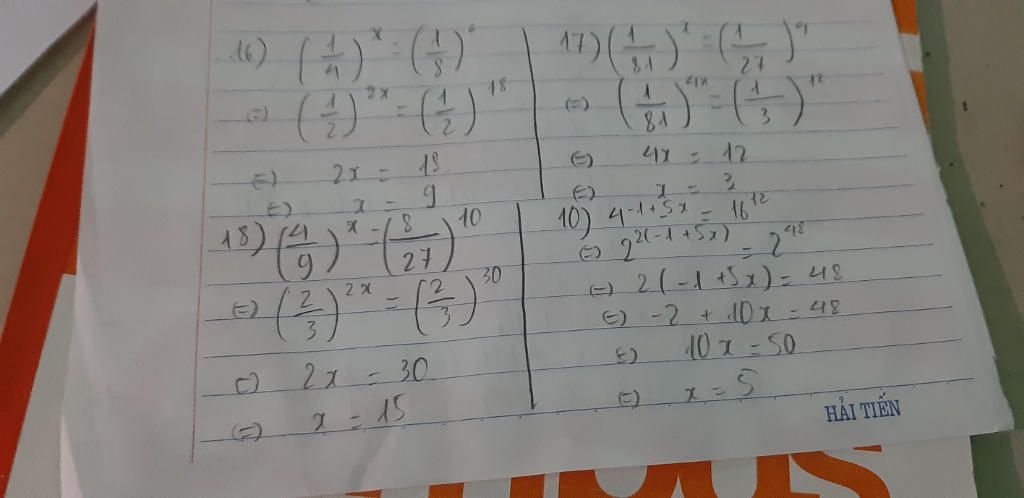 16) (1/4)^x = (1/8)^6
⇔ (1/2)^2x = (1/2)^18
⇔ 2x = 18
⇔ x = 9
17) (1/81)^x = (1/27)^4
⇔ (1/81)^4x = (1/3)^12
⇔ 4x = 12
⇔ x = 3
18) (4/9)^x = (8/27)^10
⇔ (2/3)^2x = (2/3)^30
⇔ 2x = 30
⇔ x = 15
10) 4^-1+5x = 16^12
⇔ 2^2(-1+5x) = 2^48
⇔ 2(-1+5x) = 48
⇔ -2 + 10x = 48
⇔ 10x = 50
⇔ x = 5
HẢI TIẾN